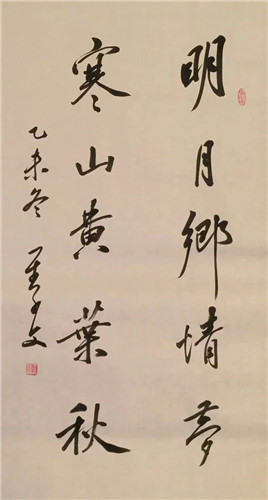 明月鄉情夢
寒山黃葉秋
乙未冬